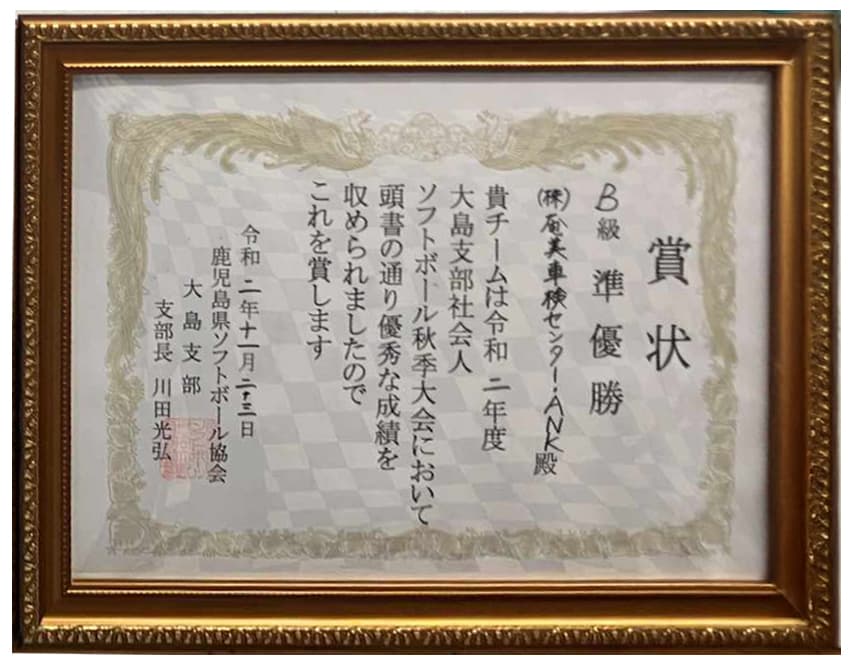 賞状
B級 準優勝
(株)奄美車検センター・ANK殿
貴チームは令和二年度
大島支部社会人
ソフトボール秋季大会において
頭書の通り優秀な成績を
収められましたので
これを賞します
令和二年十一月二十三日
鹿児島県ソフトボール協会
大島支部
支部長 川田光弘